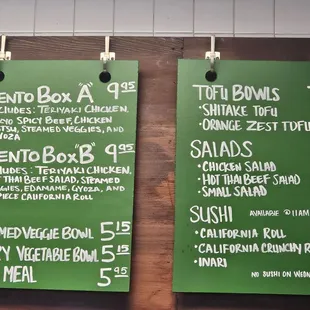 ENTO BOX "A" 9.95
CLUDES: TERIYAKI CHICKEN,
KYO SPICY BEEF, CHICKEN
TSU, STEAMED VEGGIES, AND
YOZA
ENTO BOX "B" 9.95
LUDES: TERIYAKI CHICKEN,
THAI BEEF SALAD, STEAMED
GGIES, EDAMAME, GYOZA, AND
PIECE CALIFORNIA ROLL
MED VEGGIE BOWL 5.15
Y VEGETABLE BOWL 5.15
MEAL 5.95
TOFU BOWLS
• SHITAKE TOFU
• ORANGE ZEST TOFU
SALADS
• CHICKEN SALAD
• HOT THAI BEEF SALAD
• SMALL SALAD
SUSHI AVAILABLE @ 11AM
• CALIFORNIA ROLL
• CALIFORNIA CRUNCHY R
• INARI
NO SUSHI ON WEDN